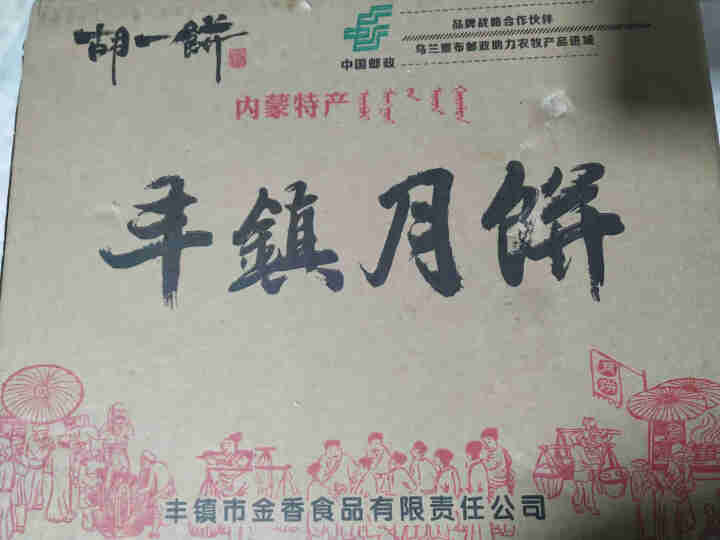 胡一餅
中国邮政
品牌战略合作伙伴
乌兰察布邮政助力农牧产品进城
内蒙特产
丰鎮月餅
丰镇市金香食品有限责任公司